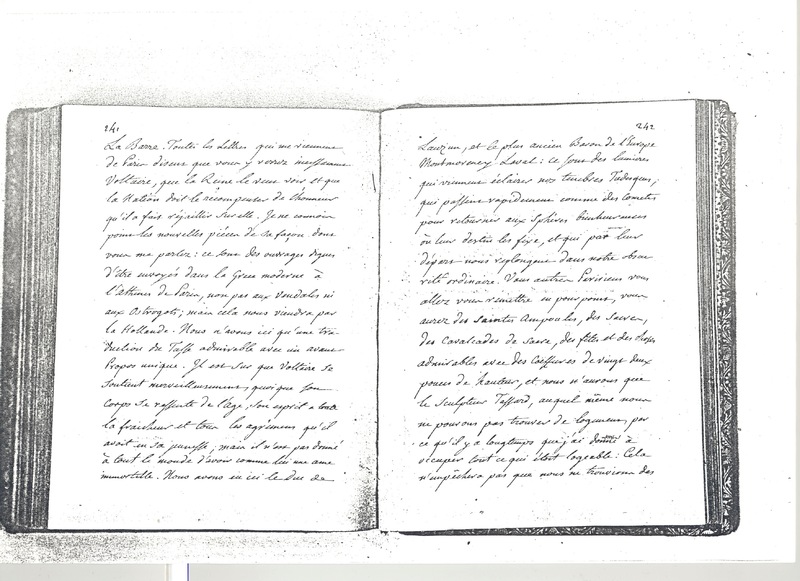 241
La Barre. Toutes les Lettres qui me viennent
de Paris disent que vous y verrez
Voltaire, que la Reine le veut voir et que
la Nation doit le récompenser de l'honneur
qu'il a fait réjaillir sur elle. Je ne connois
point les nouvelles pièces de sa façon dont
vous me parlez: ce sont des ouvrages dignes
d'être envoyés dans la Grece moderne à
l'athenes de Paris, non pas aux Vandales ni
aux Ostrogots; mais cela nous viendra par
la Hollande. Nous n'avons ici qu'une tra-
duction du Tasse admirable avec un avant-
Propos unique. Il est sur que Voltaire se
soutient merveilleusement; quoique son
corps se ressente de l'âge; son esprit a toute
la fraicheur et tous les agrémens qu'il
avoit en sa jeunesse; mais il n'est pas donné
à tout le monde d'avoir comme lui une ame
immortelle. Nous avons eu ici le Duc de
242
Lauzun, et le plus ancien Baron de l'Europe
Montmorency Laval: ce sont des lumieres
qui viennent éclairer nos tenebres Tudesques;
qui passent rapidement comme des cometes
pour retourner aux sphères bienheureuses
où leur destin les fixe, et qui par leur
départ nous replongent dans notre obscu
rité ordinaire. Vous autres Parisiens vous
allez vous remettre en pourpoint, vous
aurez des saintes Ampoules, des sacres,
des Cavalcades de sacre, des fêtes et des choses
admirables avec des coeffures de vingt deux
pouces de hauteur, et nous n'aurons que
le sculpteur Tassard, auquel même nous
ne pouvons pas trouver de logement, par
ce qu'il y a longtemps que j'ai donné à
occuper tout ce qui étoit logeable: Cela
n'empêchera pas que nous ne trouvions des